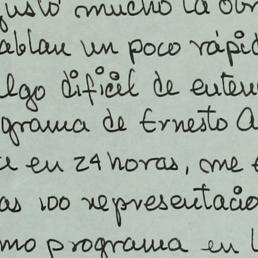 gustó mucho la obr
ablan un poco rápid
lgo dificil de enten
grama de Ernesto A
a en 24 horas, me
as 100 representacio
mo programa en l